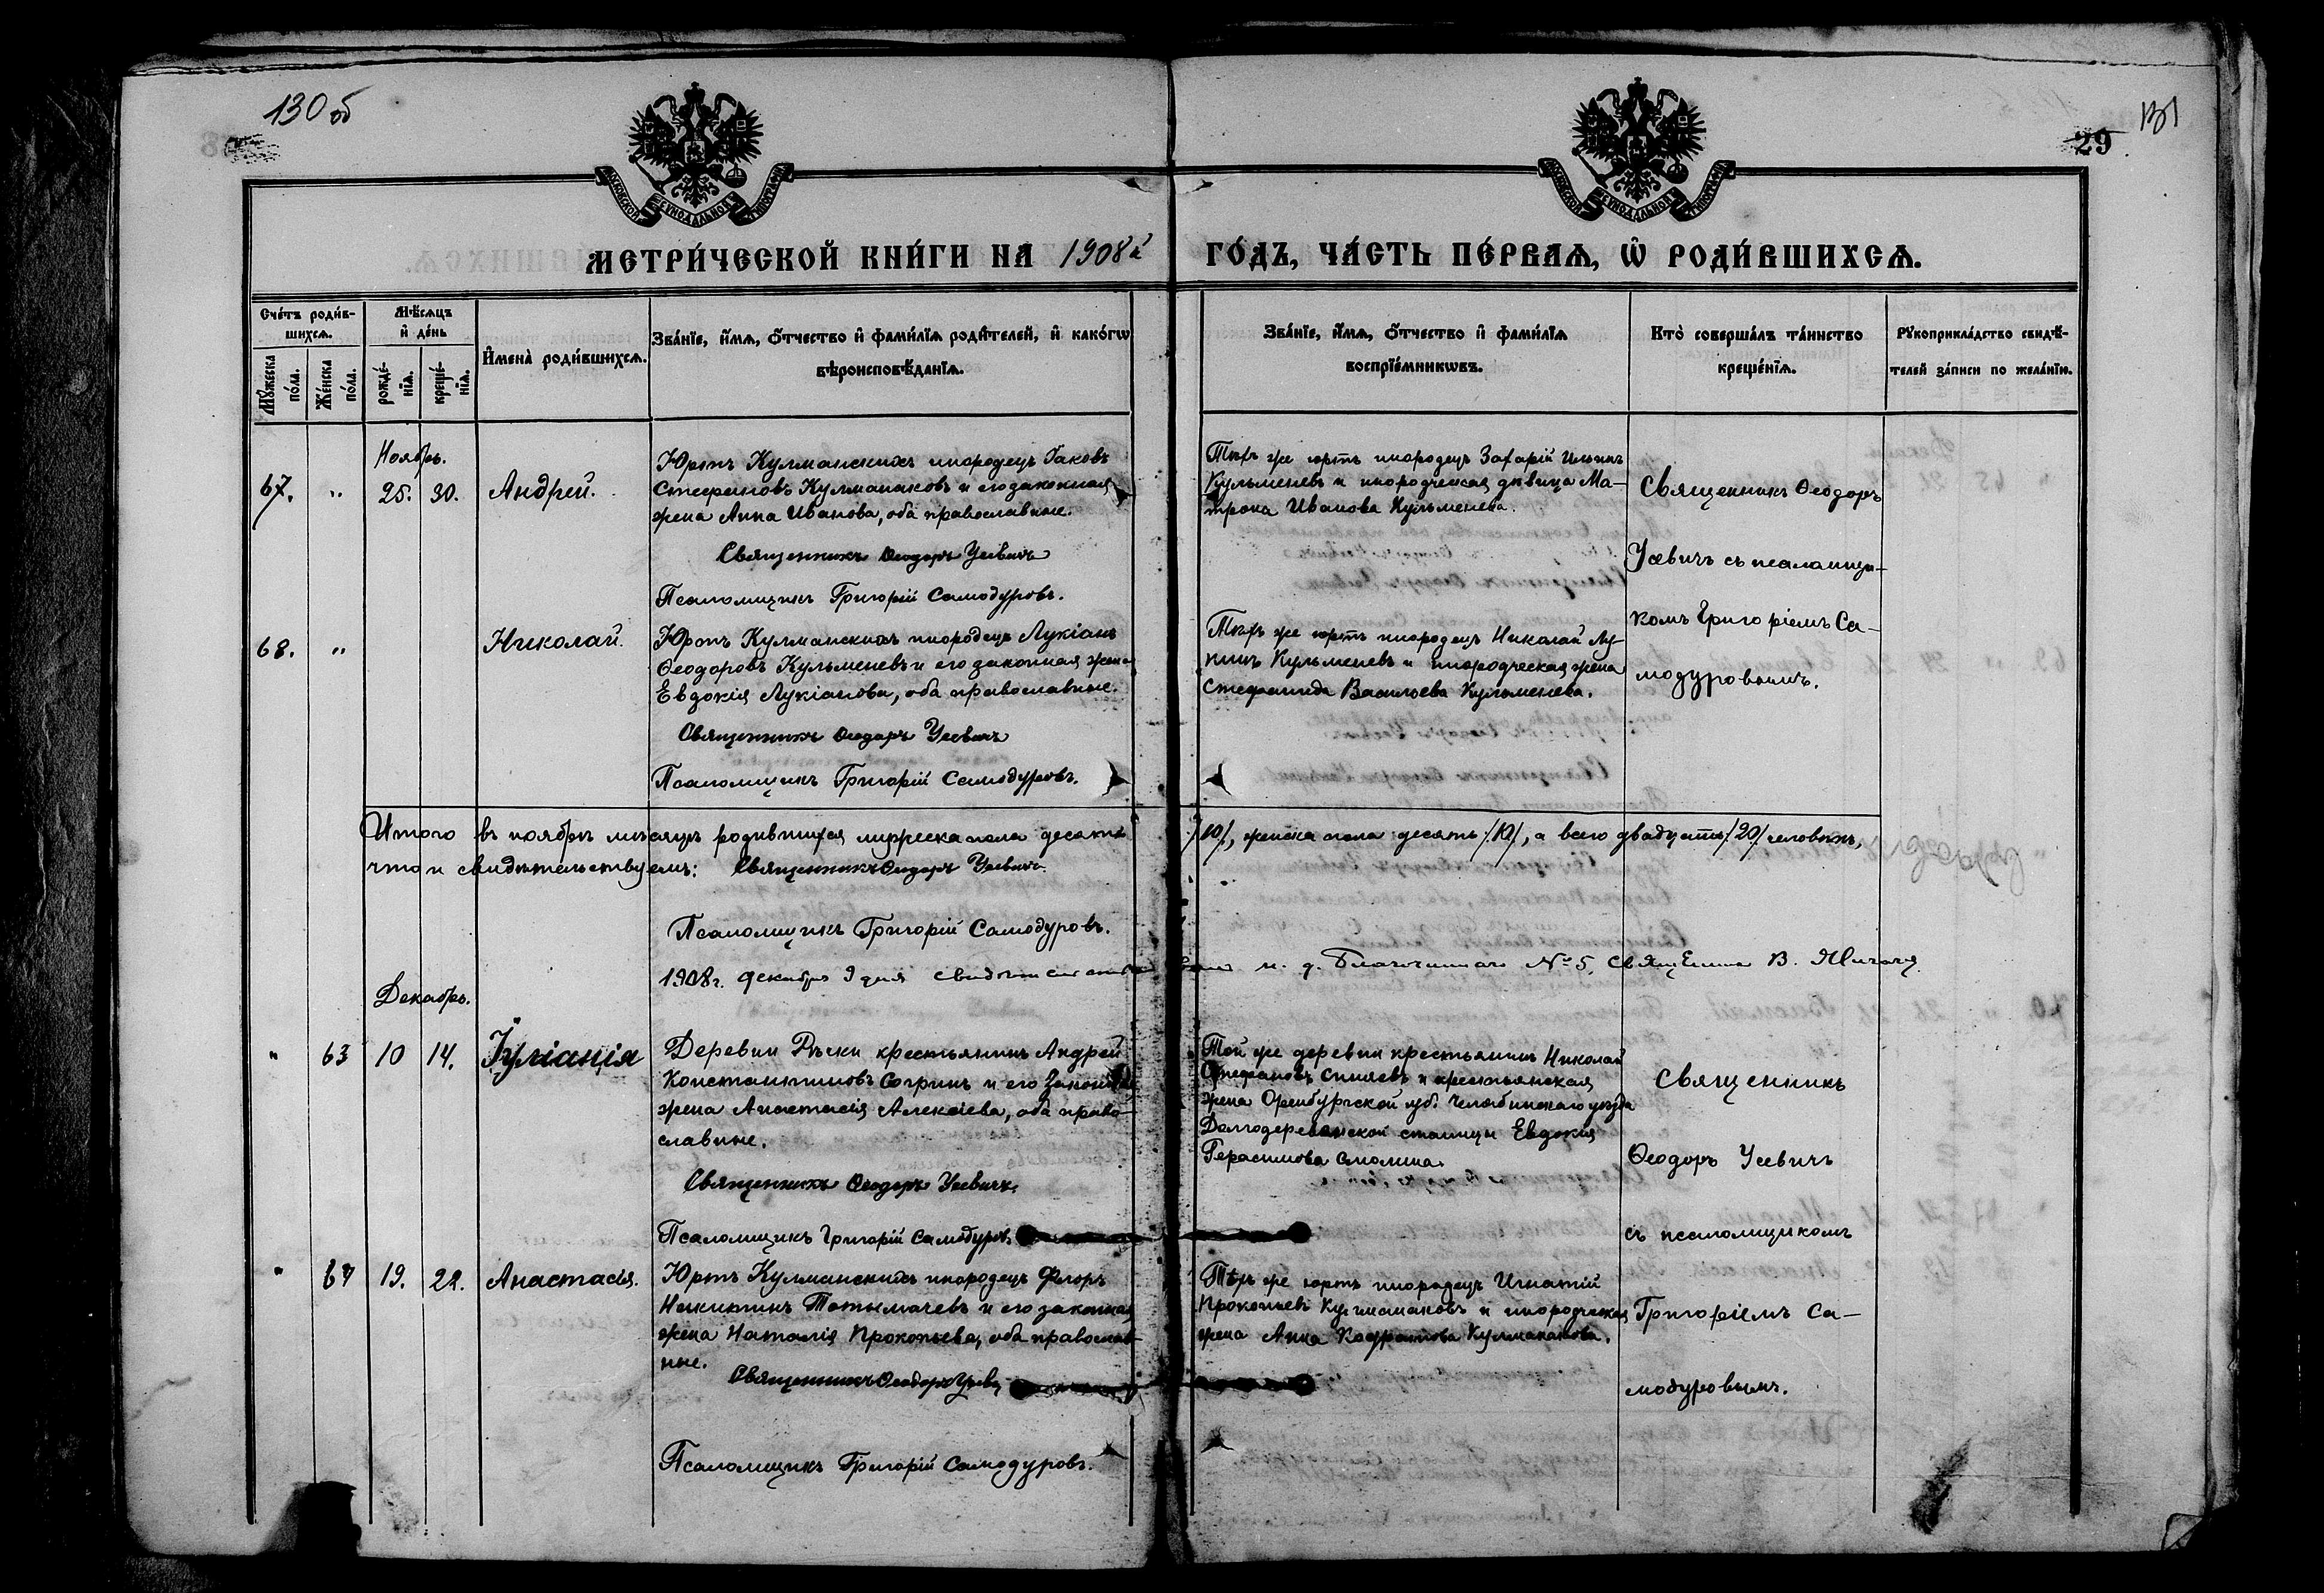 130 об
131
29
МОСКОВСКОЙ СѴНОДАЛЬНОЙ ТИПОГРАФІИ
МОСКОВСКОЙ СѴНОДАЛЬНОЙ ТИПОГРАФІИ
МЕТРИ́ЧЕСКОЙ КНИ́ГИ НА 1908й ГО́ДЪ, ЧА́СТЬ ПЕ́РВАѦ, Ѡ҆ РОДИ́ВШИХСѦ.
Сче́тъ роди́в-
шихсѧ.
Мꙋ́жеска
по́ла.
Же́нска
по́ла.
Мѣ́сѧцъ
и҆ де́нь
рожде́-
нїѧ.
креще́-
нїѧ.
И҆мена̀ роди́вшихсѧ.
Зва́нїе, и҆́мѧ, ѻ҆́тчество и҆ фами́лїѧ роди́телей, и҆ како́гѡ
вѣроисповѣ́данїѧ.
Зва́нїе, и҆́мѧ, ѻ҆́тчество и҆ фами́лїѧ
воспрїе́мникѡвъ.
Кто̀ соверша́лъ та́инство
креще́нїѧ.
Рꙋкоприкла́дство свидѣ́-
телей за́писи по жела́нїю.
Ноябрь.
67. " 25. 30. Андрей.
Юртъ Кулманскихъ инородецъ Іаковъ
Стефановъ Кулманаковъ и его законная
жена Анна Иванова, оба православные.
Священникъ Ѳеодоръ Усевичъ
Псаломщикъ Григорій Самодуровъ.
Тѣхъ же юртъ инородецъ Захарій Ильинъ
Кульменевъ и инородческая дѣвица Ма-
трона Иванова Кульменева.
Священникъ Ѳеодоръ
Усевичъ съ псаломщи-
комъ Григоріемъ Са-
модуровымъ.
68. " Николай.
Юртъ Кулманскихъ инородецъ Лукіанъ
Ѳеодоровъ Кульменевъ и его законная жена
Евдокія Лукіанова, оба православные.
Священникъ Ѳеодоръ Усевичъ
Псаломщикъ Григорій Самодуровъ.
Тѣхъ же юртъ инородецъ Николай Лу-
кинъ Кульменевъ и инородческая жена
Стефанида Васильева Кульменева.
Итого въ ноябрѣ мѣсяцѣ родившихся мужеска пола десять /10/, женска пола десять /10/, а всего двадцать /20/ человѣкъ,
что и свидѣтельствуемъ: Священникъ Ѳеодоръ Усевичъ.
Псаломщикъ Григорій Самодуровъ.
1908 г. декабря 9 дня и. д. Благочиннаго № 5, священникъ В.
Декабрь.
" 63 10 14. Іуліанія
Деревни Рѣски крестьянинъ Андрей
Константиновъ Согринъ и его законная
жена Анастасія Алексіева, оба право-
славные.
Священникъ Ѳеодоръ Усевичъ.
Псаломщикъ Григорій Самодуровъ
Той же деревни крестьянинъ Николай
Стефановъ Синяевъ и крестьянская
жена Оренбургской губ. Челябинскаго уѣзда
Долгодеревенской станицы Евдокія
Герасимова Смолина.
Священникъ
Ѳеодоръ Усевичъ
съ псаломщикомъ
Григоріемъ Са-
модуровымъ.
" 64 19. 22. Анастасія.
Юртъ Кулманскихъ инородецъ Флоръ
Никитинъ Тотымачевъ и его законная
жена Наталія Прокопьева, оба православ-
ные.
Священникъ Ѳеодоръ Усевич
Псаломщикъ Григорій Самодуровъ.
Тѣхъ же юртъ инородецъ Игнатій
Прокопьевъ Кулманаковъ и инородческая
жена Анна Кулманакова.